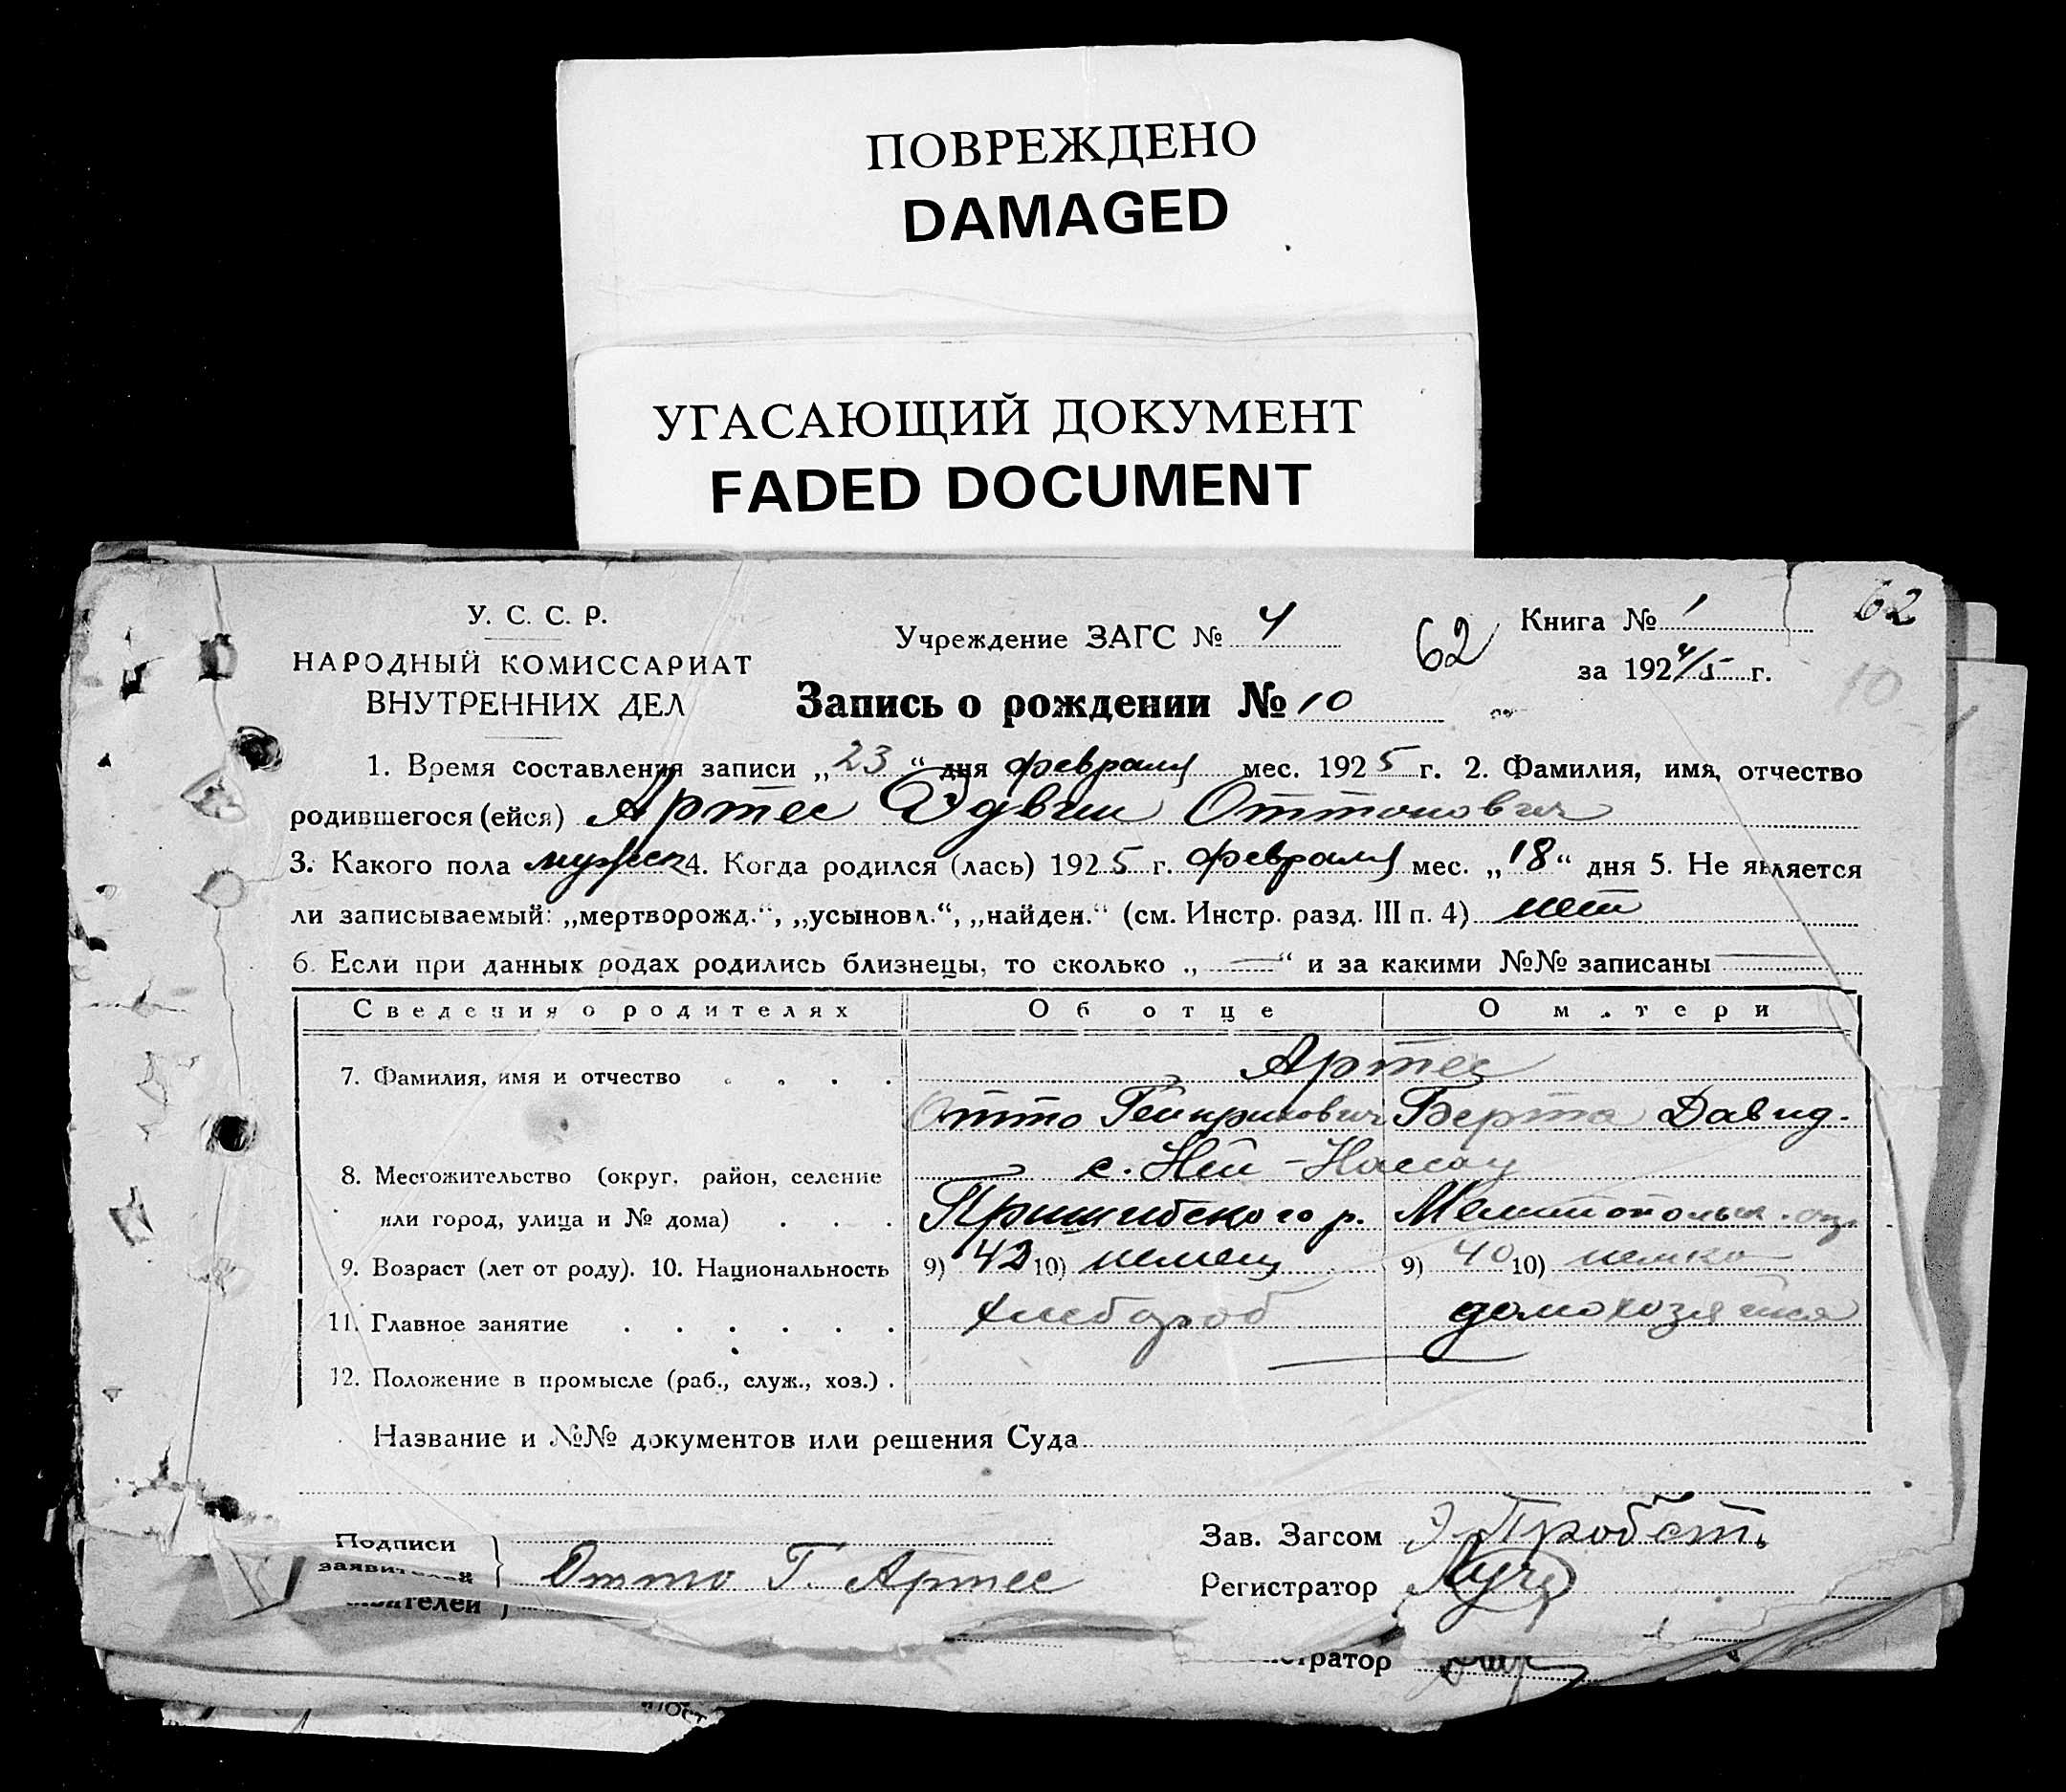 ПОВРЕЖДЕНО
DAMAGED
УГАСАЮЩИЙ ДОКУМЕНТ
FADED DOCUMENT
У. С. С. Р.
НАРОДНЫЙ КОМИССАРИАТ
ВНУТРЕННИХ ДЕЛ
Учреждение ЗАГС № 4
62
Книга № 1
за 1924/5 г.
62
10
Запись о рождении № 10
1. Время составления записи „23“ дня февраля мес. 1925 г. 2. Фамилия, имя, отчество
родившегося (ейся) Артес Эдвин Оттонович
3. Какого пола мужск 4. Когда родился (лась) 1925 г. февраля мес. „18“ дня 5. Не является
ли записываемый: „мертворожд.“, „усыновл.“, „найден.“ (см. Инстр. разд. III п. 4) нет
6. Если при данных родах родились близнецы, то сколько „—“ и за какими №№ записаны —
Сведения о родителях Об отце О м.тери
7. Фамилия, имя и отчество . . . . Артес
Отто Гейнрихович Берта Давид.
8. Местожительство (округ, район, селение с. Ней-Нассау
или город, улица и № дома) . . . Пришибского р. Мелитопольск. ок.
9. Возраст (лет от роду). 10. Национальность 9) 42 10) немец 9) 40 10) немка
11. Главное занятие . . . . . . хлебороб домохозяйка
12. Положение в промысле (раб., служ., хоз.) . —
Название и №№ документов или решения Суда
Подписи заявителей } Отто Г. Артес
Зав. Загсом Э. Пробсть
Регистратор
вителей
стратор